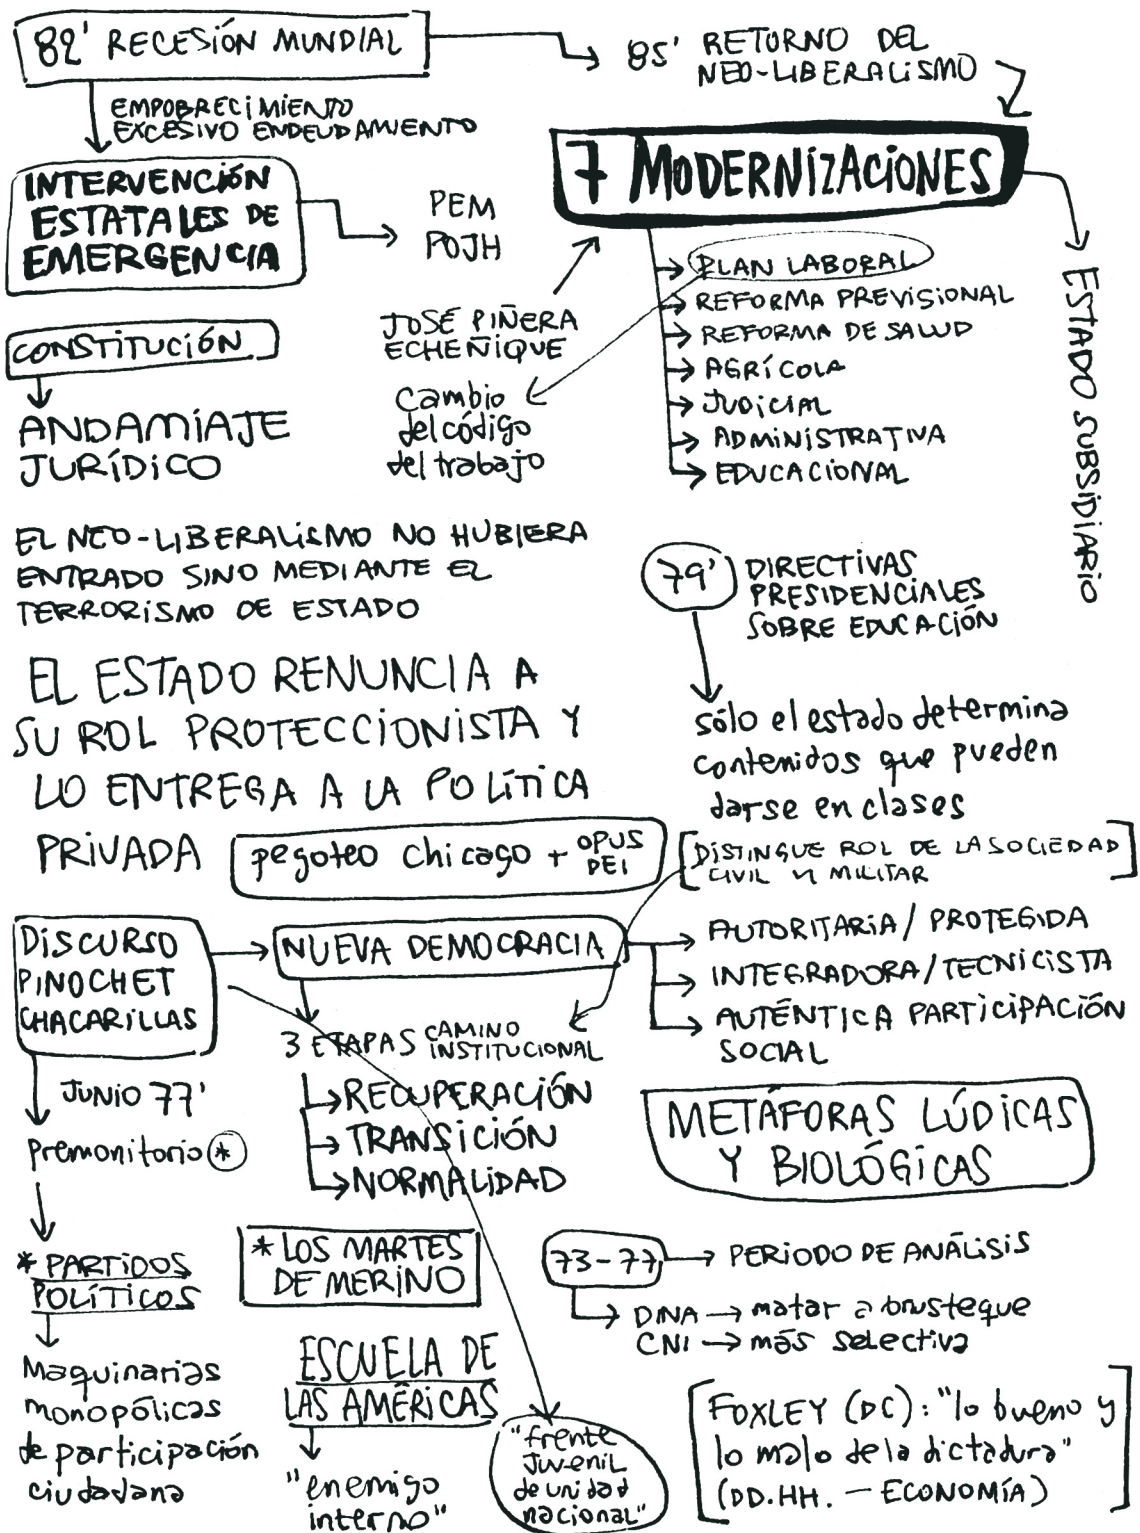 82' RECESIÓN MUNDIAL
85' RETORNO DEL
NEO-LIBERALISMO
EMPOBRECIMIENTO
EXCESIVO ENDEUDAMIENTO
7 MODERNIZACIONES
INTERVENCIÓN
ESTATALES DE
EMERGENCIA
PEM
POJH
PLAN LABORAL
REFORMA PREVISIONAL
REFORMA DE SALUD
AGRÍCOLA
JUDICIAL
ADMINISTRATIVA
EDUCACIONAL
ESTADO SUBSIDIARIO
JOSÉ PIÑERA
ECHEÑIQUE
cambio
del código
del trabajo
CONSTITUCIÓN
ANDAMIAJE
JURÍDICO
EL NEO-LIBERALISMO NO HUBIERA
ENTRADO SINO MEDIANTE EL
TERRORISMO DE ESTADO
79' DIRECTIVAS
PRESIDENCIALES
SOBRE EDUCACIÓN
sólo el estado determina
contenidos que pueden
darse en clases
EL ESTADO RENUNCIA A
SU ROL PROTECCIONISTA Y
LO ENTREGA A LA POLÍTICA
PRIVADA
pegoteo chicago + OPUS
DEI
[DISTINGUE ROL DE LA SOCIEDAD
CIVIL Y MILITAR]
DISCURSO
PINOCHET
CHACARILLAS
NUEVA DEMOCRACIA
AUTORITARIA / PROTEGIDA
INTEGRADORA / TECNICISTA
AUTÉNTICA PARTICIPACIÓN
SOCIAL
3 ETAPAS CAMINO
INSTITUCIONAL
RECUPERACIÓN
TRANSICIÓN
NORMALIDAD
JUNIO 77'
Premonitorio *
METÁFORAS LÚDICAS
Y BIOLÓGICAS
* PARTIDOS
POLÍTICOS
Maquinarias
monopólicas
de participación
ciudadana
* LOS MARTES
DE MERINO
73-77 PERIODO DE ANÁLISIS
DINA → matar a brusteque
CNI → más selectiva
ESCUELA DE
LAS AMÉRICAS
"enemigo
interno"
"frente
Juvenil
de unidad
nacional"
[FOXLEY (DC): "lo bueno y
lo malo de la dictadura"
(DD.HH. - ECONOMÍA)]